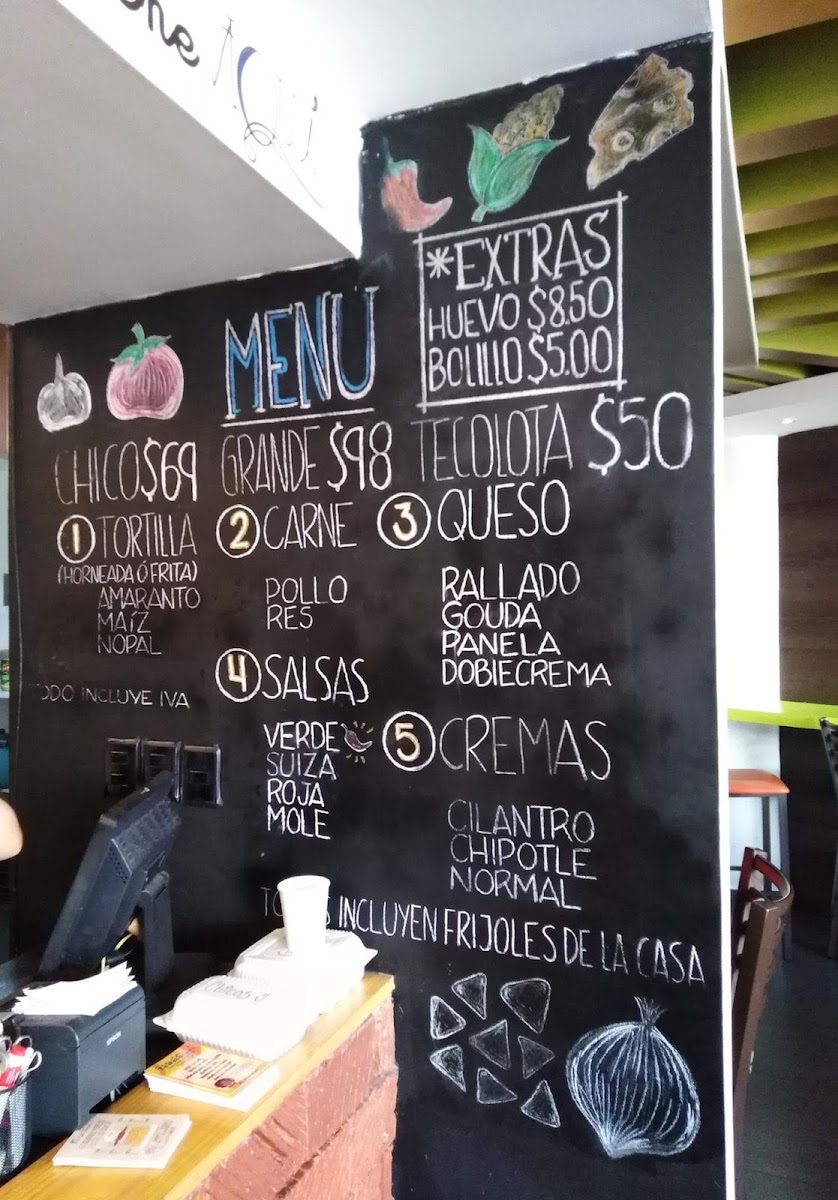 AQUÍ
MENU
*EXTRAS
HUEVO $8.50
BOLILLO $5.00
CHICO $69
GRANDE $98
TECOLOTA $50
1 TORTILLA
(HORNEADA Ó FRITA)
AMARANTO
MAÍZ
NOPAL
TODO INCLUYE IVA
2 CARNE
POLLO
RES
3 QUESO
RALLADO
GOUDA
PANELA
DOBIECREMA
4 SALSAS
VERDE
SUIZA
ROJA
MOLE
5 CREMAS
CILANTRO
CHIPOTLE
NORMAL
INCLUYEN FRIJOLES DE LA CASA
CHICOS 3
EPSON